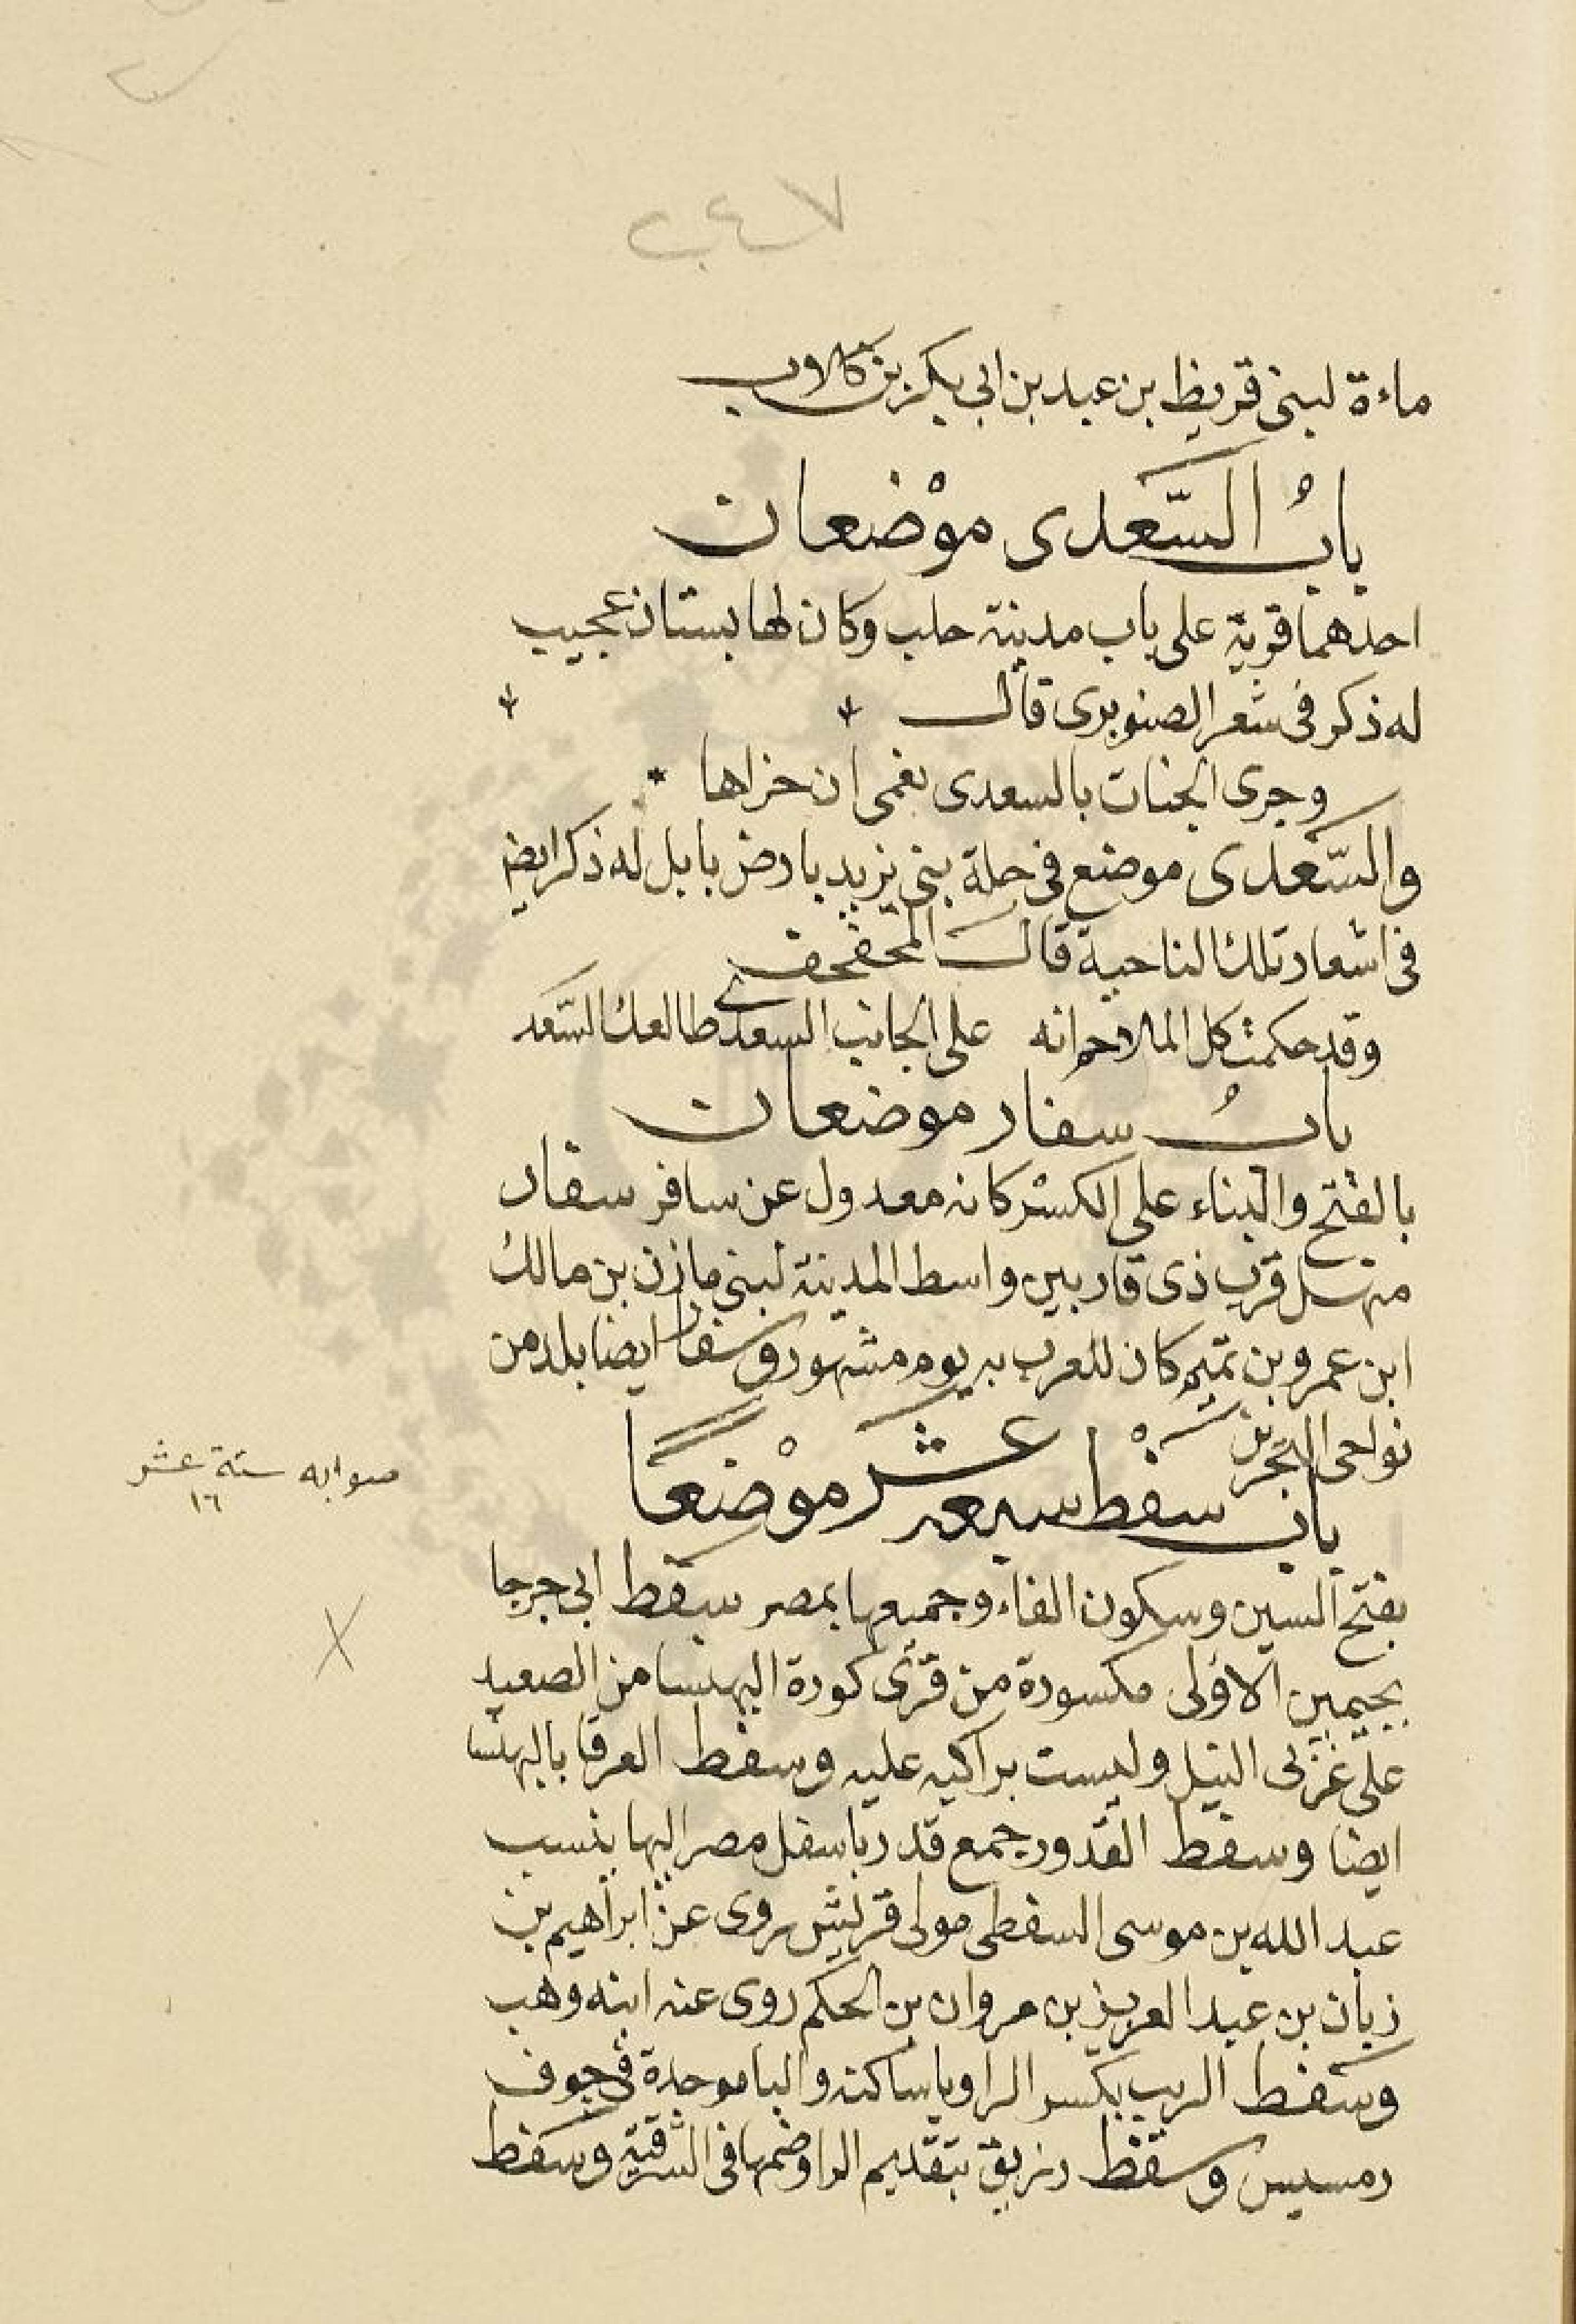 ٢٤٧
ماءة لبنى قريظ بن عبد بن ابى بكر بن كلاب
بابُ السَّعدى موْضعان
احدهما قرية على باب مدينة حلب وكان لها بستان عجيب
له ذكر فى شعر الصنوبرى قال
وجرى الجنات بالسعدى نغمى ان خزاها *
والسّعدى موضع فى حلة بنى يزيد بارض بابل له ذكر ايض
فى اشعار تلك الناحية قال
وقد حكمت كل الملاحم انه على الجانب السعدى طالعك السَّعد
بابُ سفار موضعان
بالفتح والبناء على الكسر كانه معدول عن سافر سفار
منهل قرب ذى قار بين واسط المدينة لبنى مازن بن مالك
ابن عمرو بن تميم كان للعرب به يوم مشهور وسفار ايضا بلد من
نواحى البحرين
باب سفْط سبعه عشر موْضعًا
صوابه ستة عشر
١٦
بفتح السين وسكون الفاء وجميعها بمصر سفط ابى جرجا
بجيمين الاولى مكسورة من قرى كورة البهنسا من الصعيد
على غربى النيل وليست براكبه عليه وسفط العرفا بالبهنسا
ايضا وسفط القدور جمع قدر باسفل مصر اليها ينسب
عبد الله بن موسى السفطى مولى قريش روى عن ابراهيم بن
زبان بن عبد العزيز بن مروان بن الحكم روى عنه ابنه وهب
وسفط الريب بكسر الرا ويا ساكنه والبا موحدة فى جوف
رمسيس وسفط رزيق بتقديم الرا وضمها فى الشرقية وسفط